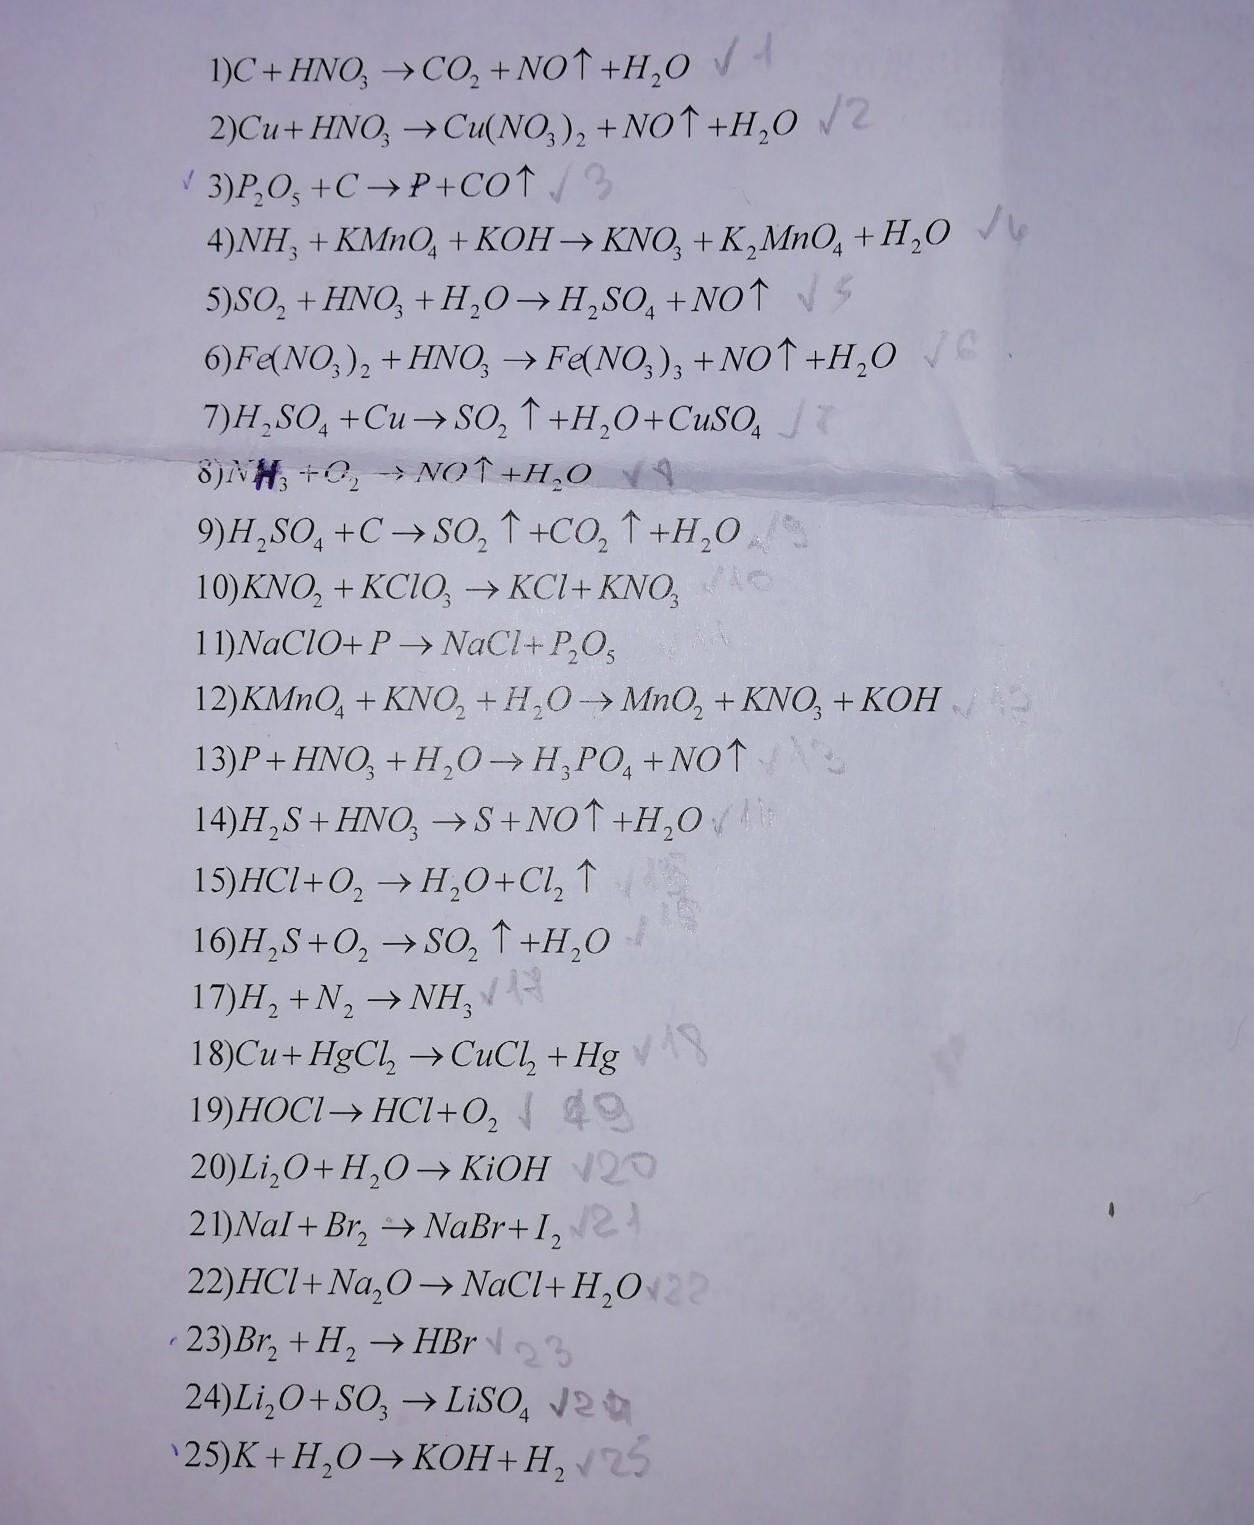 1)C + HNO₃ → CO₂ + NO↑ + H₂O √ 1
2)Cu + HNO₃ → Cu(NO₃)₂ + NO↑ + H₂O √2
√ 3)P₂O₅ + C → P + CO↑ √ 3
4)NH₃ + KMnO₄ + KOH → KNO₃ + K₂MnO₄ + H₂O √
5)SO₂ + HNO₃ + H₂O → H₂SO₄ + NO↑ √ 5
6)Fe(NO₃)₂ + HNO₃ → Fe(NO₃)₃ + NO↑ + H₂O √ 6
7)H₂SO₄ + Cu → SO₂↑ + H₂O + CuSO₄ √
8)NH₃ + O₂ → NO↑ + H₂O √
9)H₂SO₄ + C → SO₂↑ + CO₂↑ + H₂O √9
10)KNO₂ + KClO₃ → KCl + KNO₃ √10
11)NaClO + P → NaCl + P₂O₅
12)KMnO₄ + KNO₂ + H₂O → MnO₂ + KNO₃ + KOH √
13)P + HNO₃ + H₂O → H₃PO₄ + NO↑ √13
14)H₂S + HNO₃ → S + NO↑ + H₂O √14
15)HCl + O₂ → H₂O + Cl₂↑ √
16)H₂S + O₂ → SO₂↑ + H₂O
17)H₂ + N₂ → NH₃ √17
18)Cu + HgCl₂ → CuCl₂ + Hg √18
19)HOCl → HCl + O₂ √ 19
20)Li₂O + H₂O → KiOH √20
21)NaI + Br₂ → NaBr + I₂ √21
22)HCl + Na₂O → NaCl + H₂O √22
23)Br₂ + H₂ → HBr √23
24)Li₂O + SO₃ → LiSO₄ √24
25)K + H₂O → KOH + H₂ √25